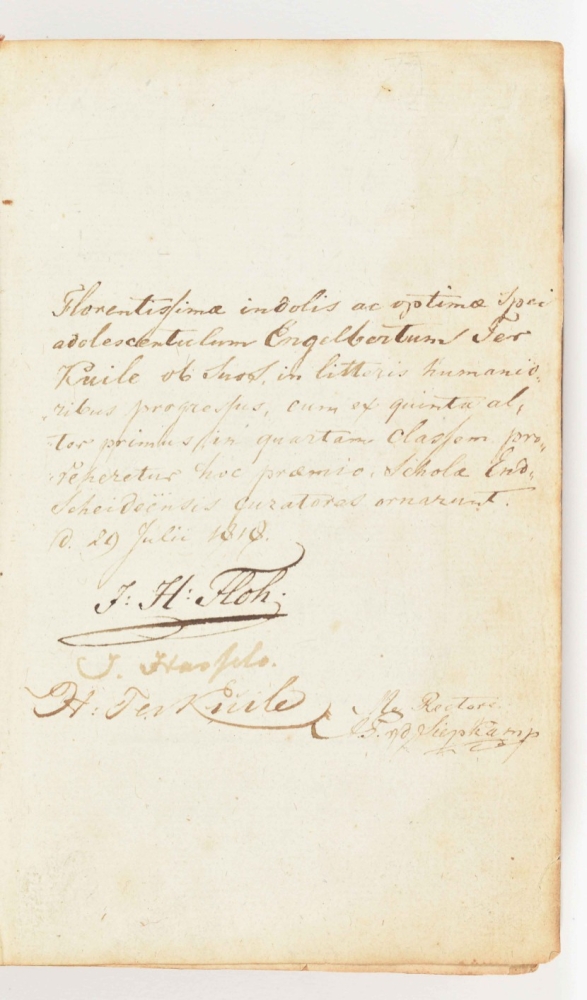 Florentissimæ indolis ac optimæ Spei
adolescentulum Engelbertum Ter
Kuile ob suos in litteris humanio-
ribus progressus, cum ex quinta al,
ter primus in quartam Classem pro-
veheretur hoc præmio, Scholæ End-
Scheideënsis curatores ornarunt.
d. 29 Julii 1818.
J: H: Floh.
J. Hasselo.
H: Ter Kuile
Me Rectore